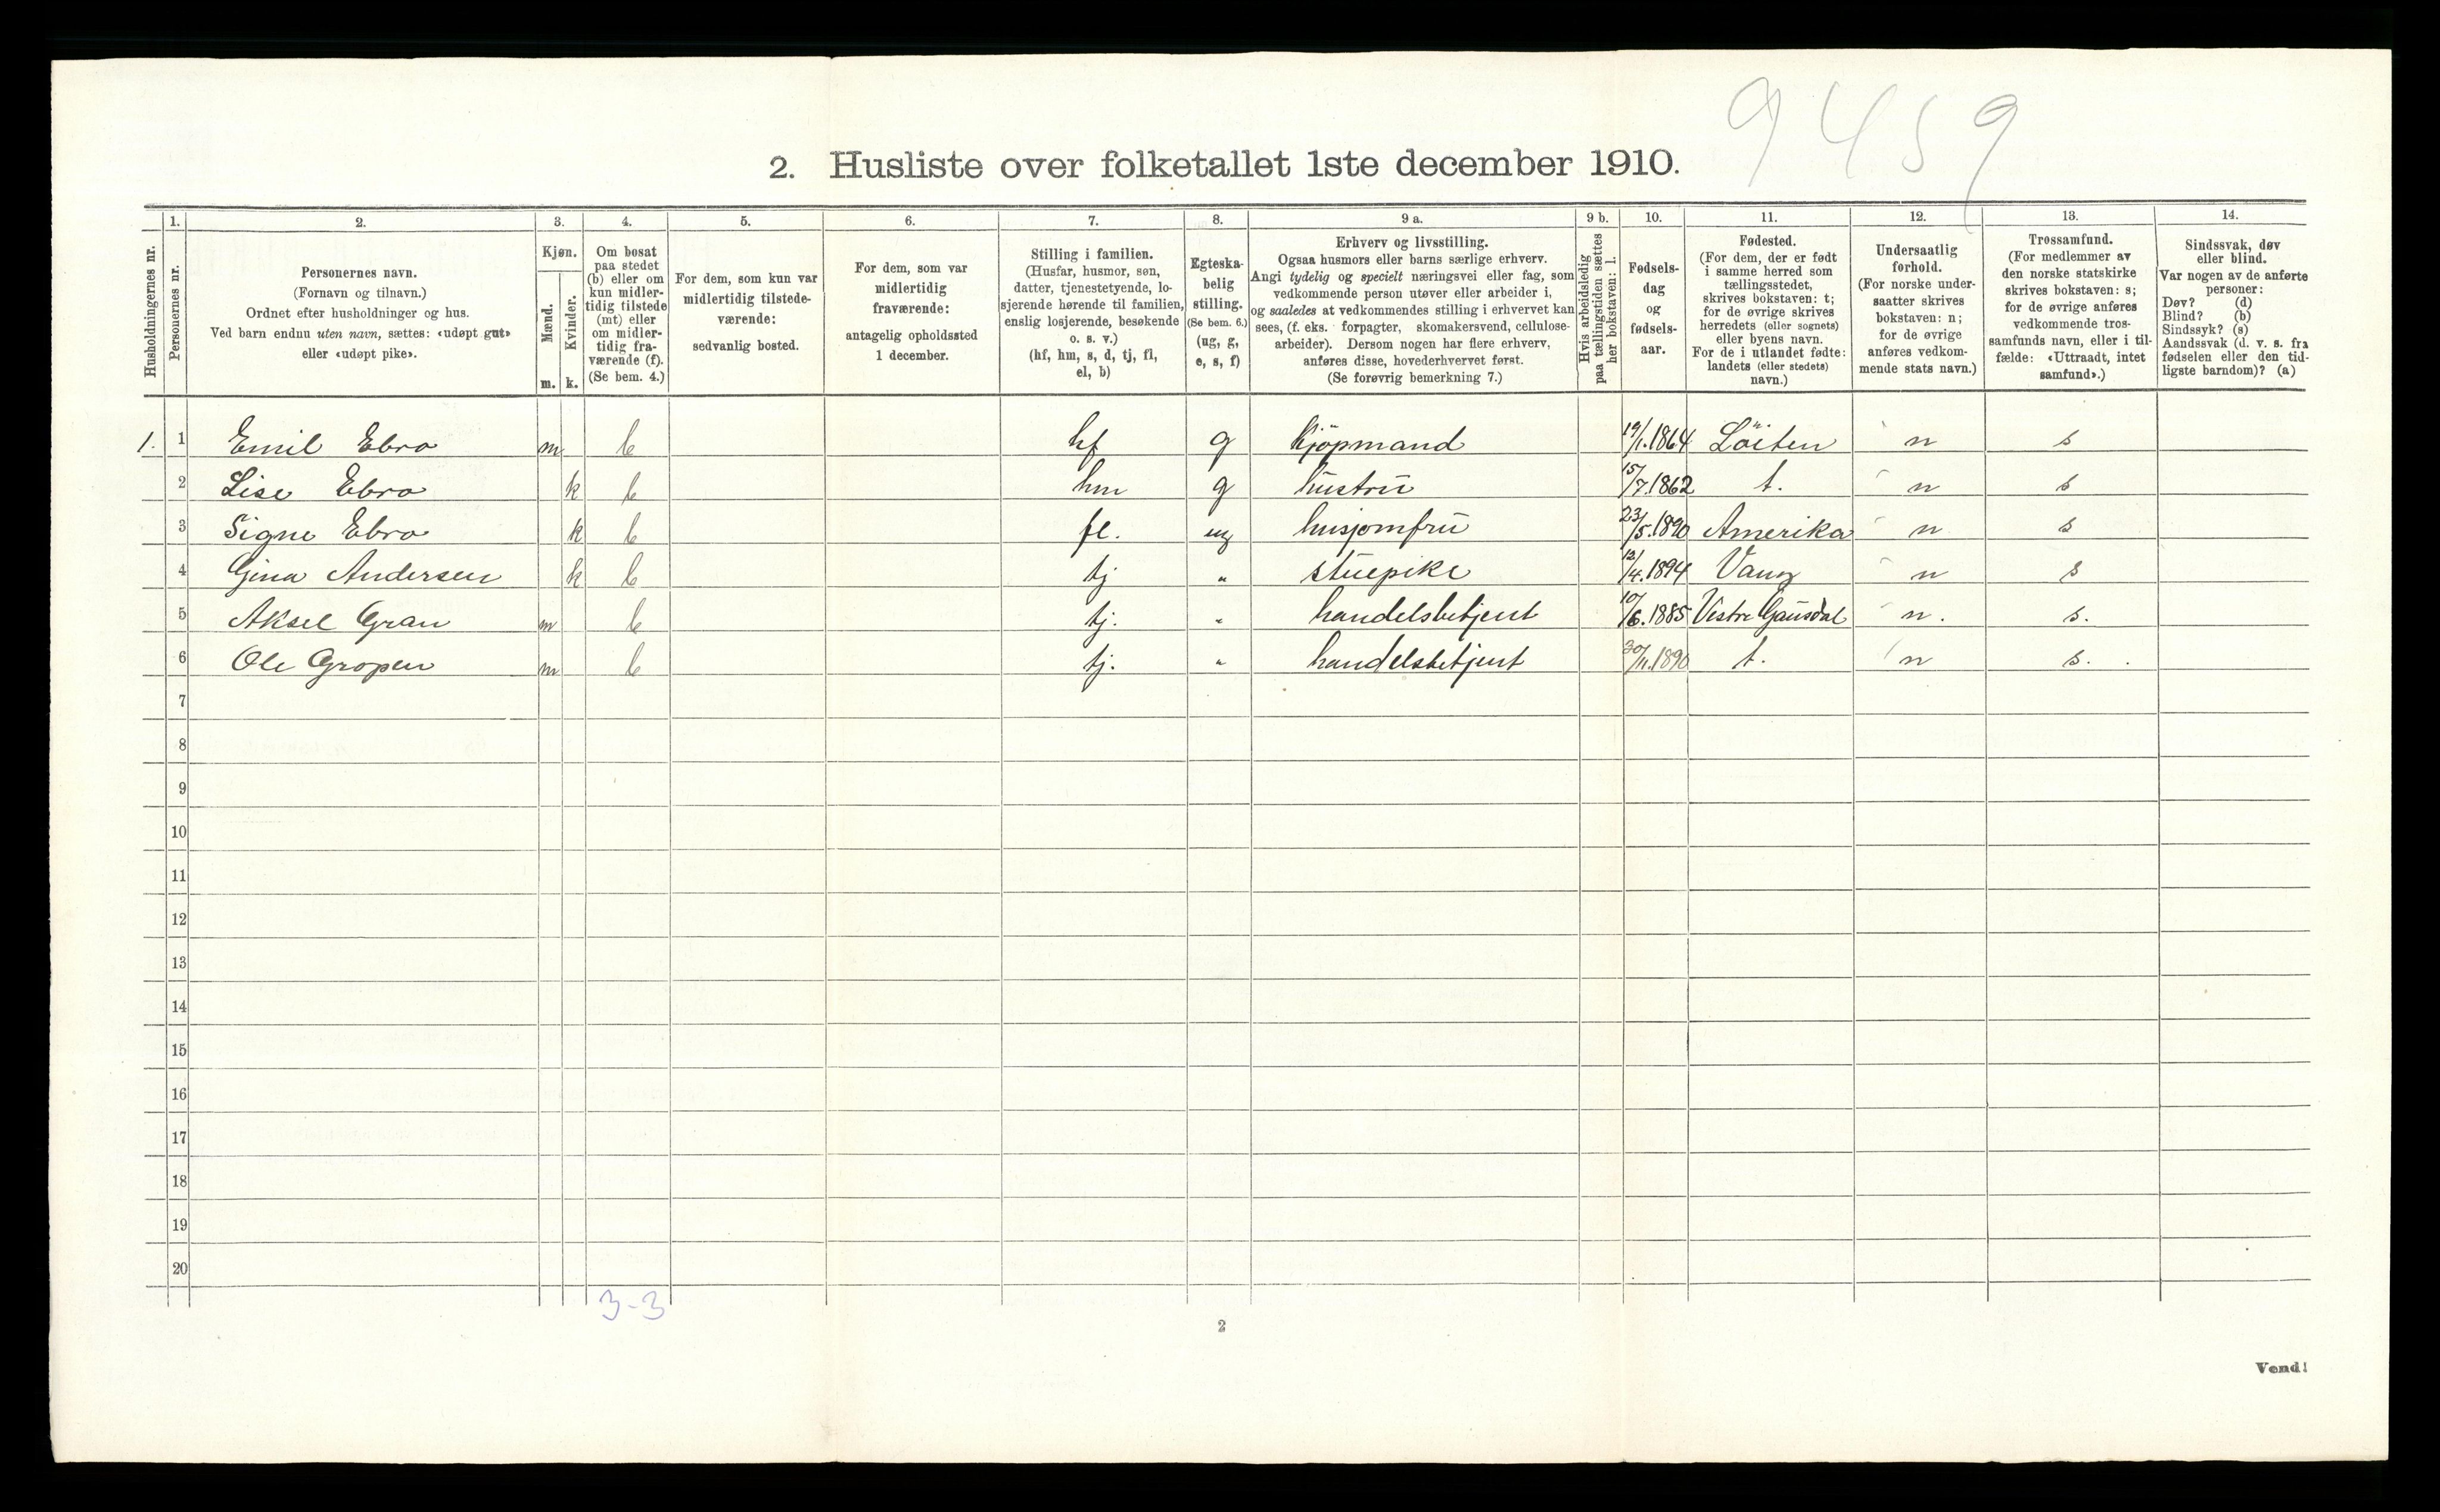 9459
2. Husliste over folketallet 1ste december 1910.
Husholdningernes nr.
1.
Personernes nr.
2.
Personernes navn.
(Fornavn og tilnavn.)
Ordnet efter husholdninger og hus.
Ved barn endnu uten navn, sættes: «udøpt gut»
eller «udøpt pike».
3.
Kjøn.
Mænd.
m.
Kvinder.
k.
4.
Om bosat
paa stedet
(b) eller om
kun midler-
tidig tilstede
(mt) eller
om midler-
tidig fra-
værende (f).
(Se bem. 4.)
5.
For dem, som kun var
midlertidig tilstede-
værende:
sedvanlig bosted.
6.
For dem, som var
midlertidig
fraværende:
antagelig opholdssted
1 december.
7.
Stilling i familien.
(Husfar, husmor, søn,
datter, tjenestetyende, lo-
sjerende hørende til familien,
enslig losjerende, besøkende
o. s. v.)
(hf, hm, s, d, tj, fl,
el, b)
8.
Egteska-
belig
stilling.
(Se bem. 6.)
(ug, g,
e, s, f)
9 a.
Erhverv og livsstilling.
Ogsaa husmors eller barns særlige erhverv.
Angi tydelig og specielt næringsvei eller fag, som
vedkommende person utøver eller arbeider i,
og saaledes at vedkommendes stilling i erhvervet kan
sees, (f. eks. forpagter, skomakersvend, cellulose-
arbeider). Dersom nogen har flere erhverv,
anføres disse, hovederhvervet først.
(Se forøvrig bemerkning 7.)
9 b.
Hvis arbeidsledig
paa tællingstiden sættes
her bokstaven: l.
10.
Fødsels-
dag
og
fødsels-
aar.
11.
Fødested.
(For dem, der er født
i samme herred som
tællingsstedet,
skrives bokstaven: t;
for de øvrige skrives
herredets (eller sognets)
eller byens navn.
For de i utlandet fødte:
landets (eller stedets)
navn.)
12.
Undersaatlig
forhold.
(For norske under-
saatter skrives
bokstaven: n;
for de øvrige
anføres vedkom-
mende stats navn.)
13.
Trossamfund.
(For medlemmer av
den norske statskirke
skrives bokstaven: s;
for de øvrige anføres
vedkommende tros-
samfunds navn, eller i til-
fælde: «Uttraadt, intet
samfund».)
14.
Sindssvak, døv
eller blind.
Var nogen av de anførte
personer:
Døv? (d)
Blind? (b)
Sindssyk? (s)
Aandssvak (d. v. s. fra
fødselen eller den tid-
ligste barndom)? (a)
1. 1 Emil Ebro m b hf g kjöpmand 19/1.1864 Löiten n s
2 Lise Ebro k b hm g hustru 15/7.1862 t. n s
3 Signe Ebro k b fl. ug husjomfru 23/5.1890 Amerika n s
4 Gina Andersen k b tj " stuepike 12/4.1894 Vang n s
5 Aksel Gran m b tj. " handelsbetjent 10/6.1885 Vestre Gausdal n. s.
6 Ole Gropen m b tj. " handelsbetjent 30/11.1890 t. n s.
7
8
9
10
11
12
13
14
15
16
17
18
19
20
3-3
2
Vend!